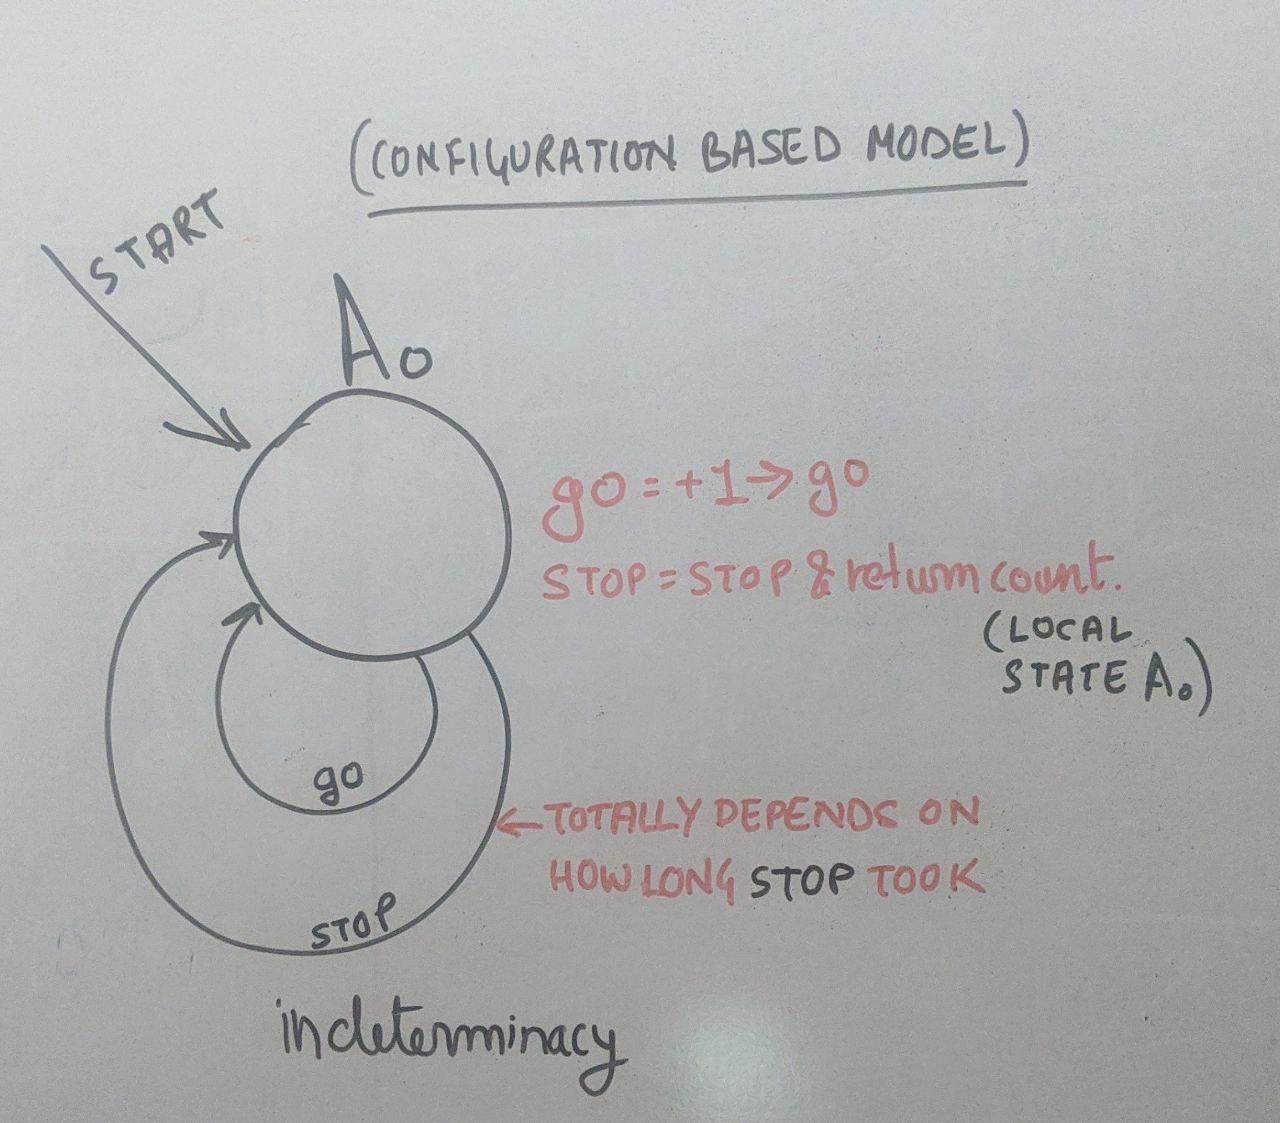 (CONFIGURATION BASED MODEL)
START
A0
go = +1 → go
STOP = STOP & return count.
(LOCAL
STATE A0)
go
← TOTALLY DEPENDS ON
HOW LONG STOP TOOK
STOP
indeterminacy